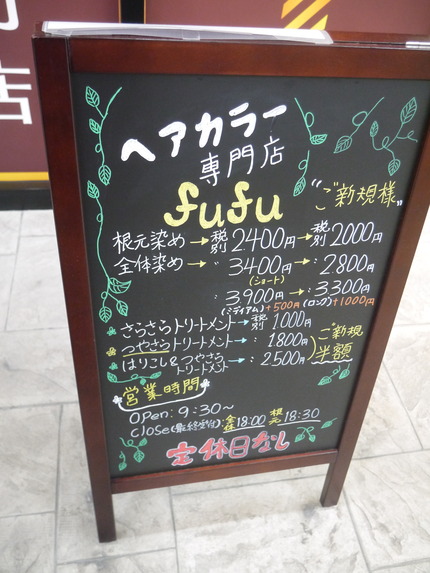 店
ヘアカラー
専門店
fufu
"ご新規様"
根元染め→税別2.400円→税別2000円
全体染め→〃3400円→〃2.800円
(ショート)
〃3,900円→〃3300円
(ミディアム)+500円(ロング)+1000円
さらさらトリートメント→税別1000円
つやさらトリートメント→〃1.800円
はりこし&つやさらトリートメント→〃2500円
ご新規半額
営業時間
open: 9:30~
close(最終受付)全体18:00 根元18:30
定休日なし